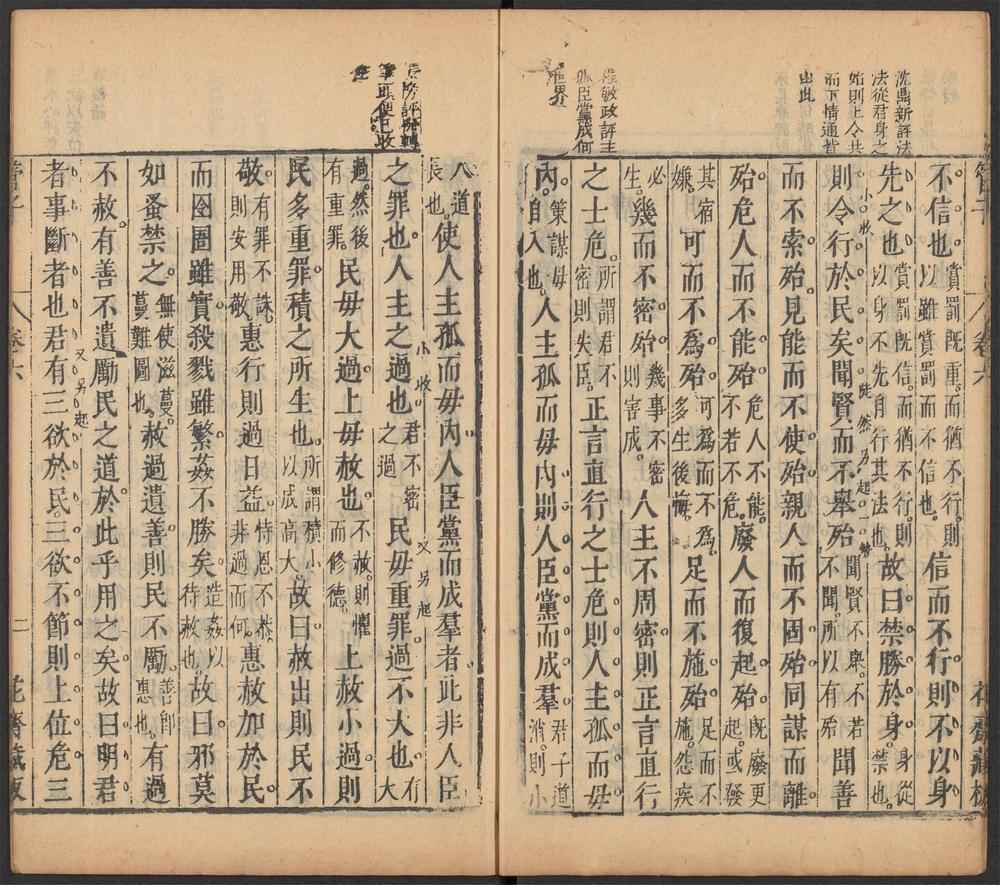 沈鼎新評法
法從君身之
始則上令共
而下情通皆
由此
程敏政評主
孤臣黨成何
世界
不信也賞罰既重而猶不行則以雖賞罰而不信也信而不行則不以身
先之也賞罰既信而猶不行則以身不先自行其法也故曰禁勝於身身從禁也
則令行於民矣聞賢而不舉殆聞賢不舉不若不聞所以有殆聞善
而不索殆見能而不使殆親人而不固殆同謀而離
殆危人而不能殆危人不能不若不危廢人而復起殆既廢更起或發
其宿嫌可而不爲殆可爲而不爲多生後悔足而不施殆足而不施怨疾
必生幾而不密殆幾事不密則害成人主不周密則正言直行
之士危所謂君不密則失臣正言直行之士危則人主孤而毋
內策謀毋自入也人主孤而毋內則人臣黨而成羣君子道消則小
評發轉
便已收
人道長也使人主孤而毋內人臣黨而成羣者此非人臣
之罪也人主之過也君不密之過民毋重罪過不大也有大
過然後有重罪民毋大過上毋赦也不赦則懼而修德上赦小過則
民多重罪積之所生也所謂積小以成高大故曰赦出則民不
敬有罪不誅則安用敬惠行則過日益恃恩不恭非過而何惠赦加於民
而囹圄雖實殺戮雖繁姦不勝矣造姦以待赦也故曰邪莫
如蚤禁之無使滋蔓蔓難圖也赦過遺善則民不勵善卽惠也有過
不赦有善不遺勵民之道於此乎用之矣故曰明君
者事斷者也君有三欲於民三欲不節則上位危三
管子
卷六
二
花齋藏板